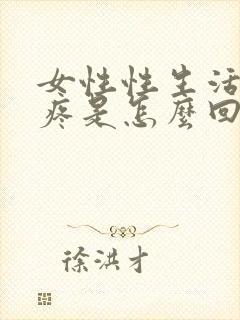 女性性生活
疼是怎麼回
徐洪才